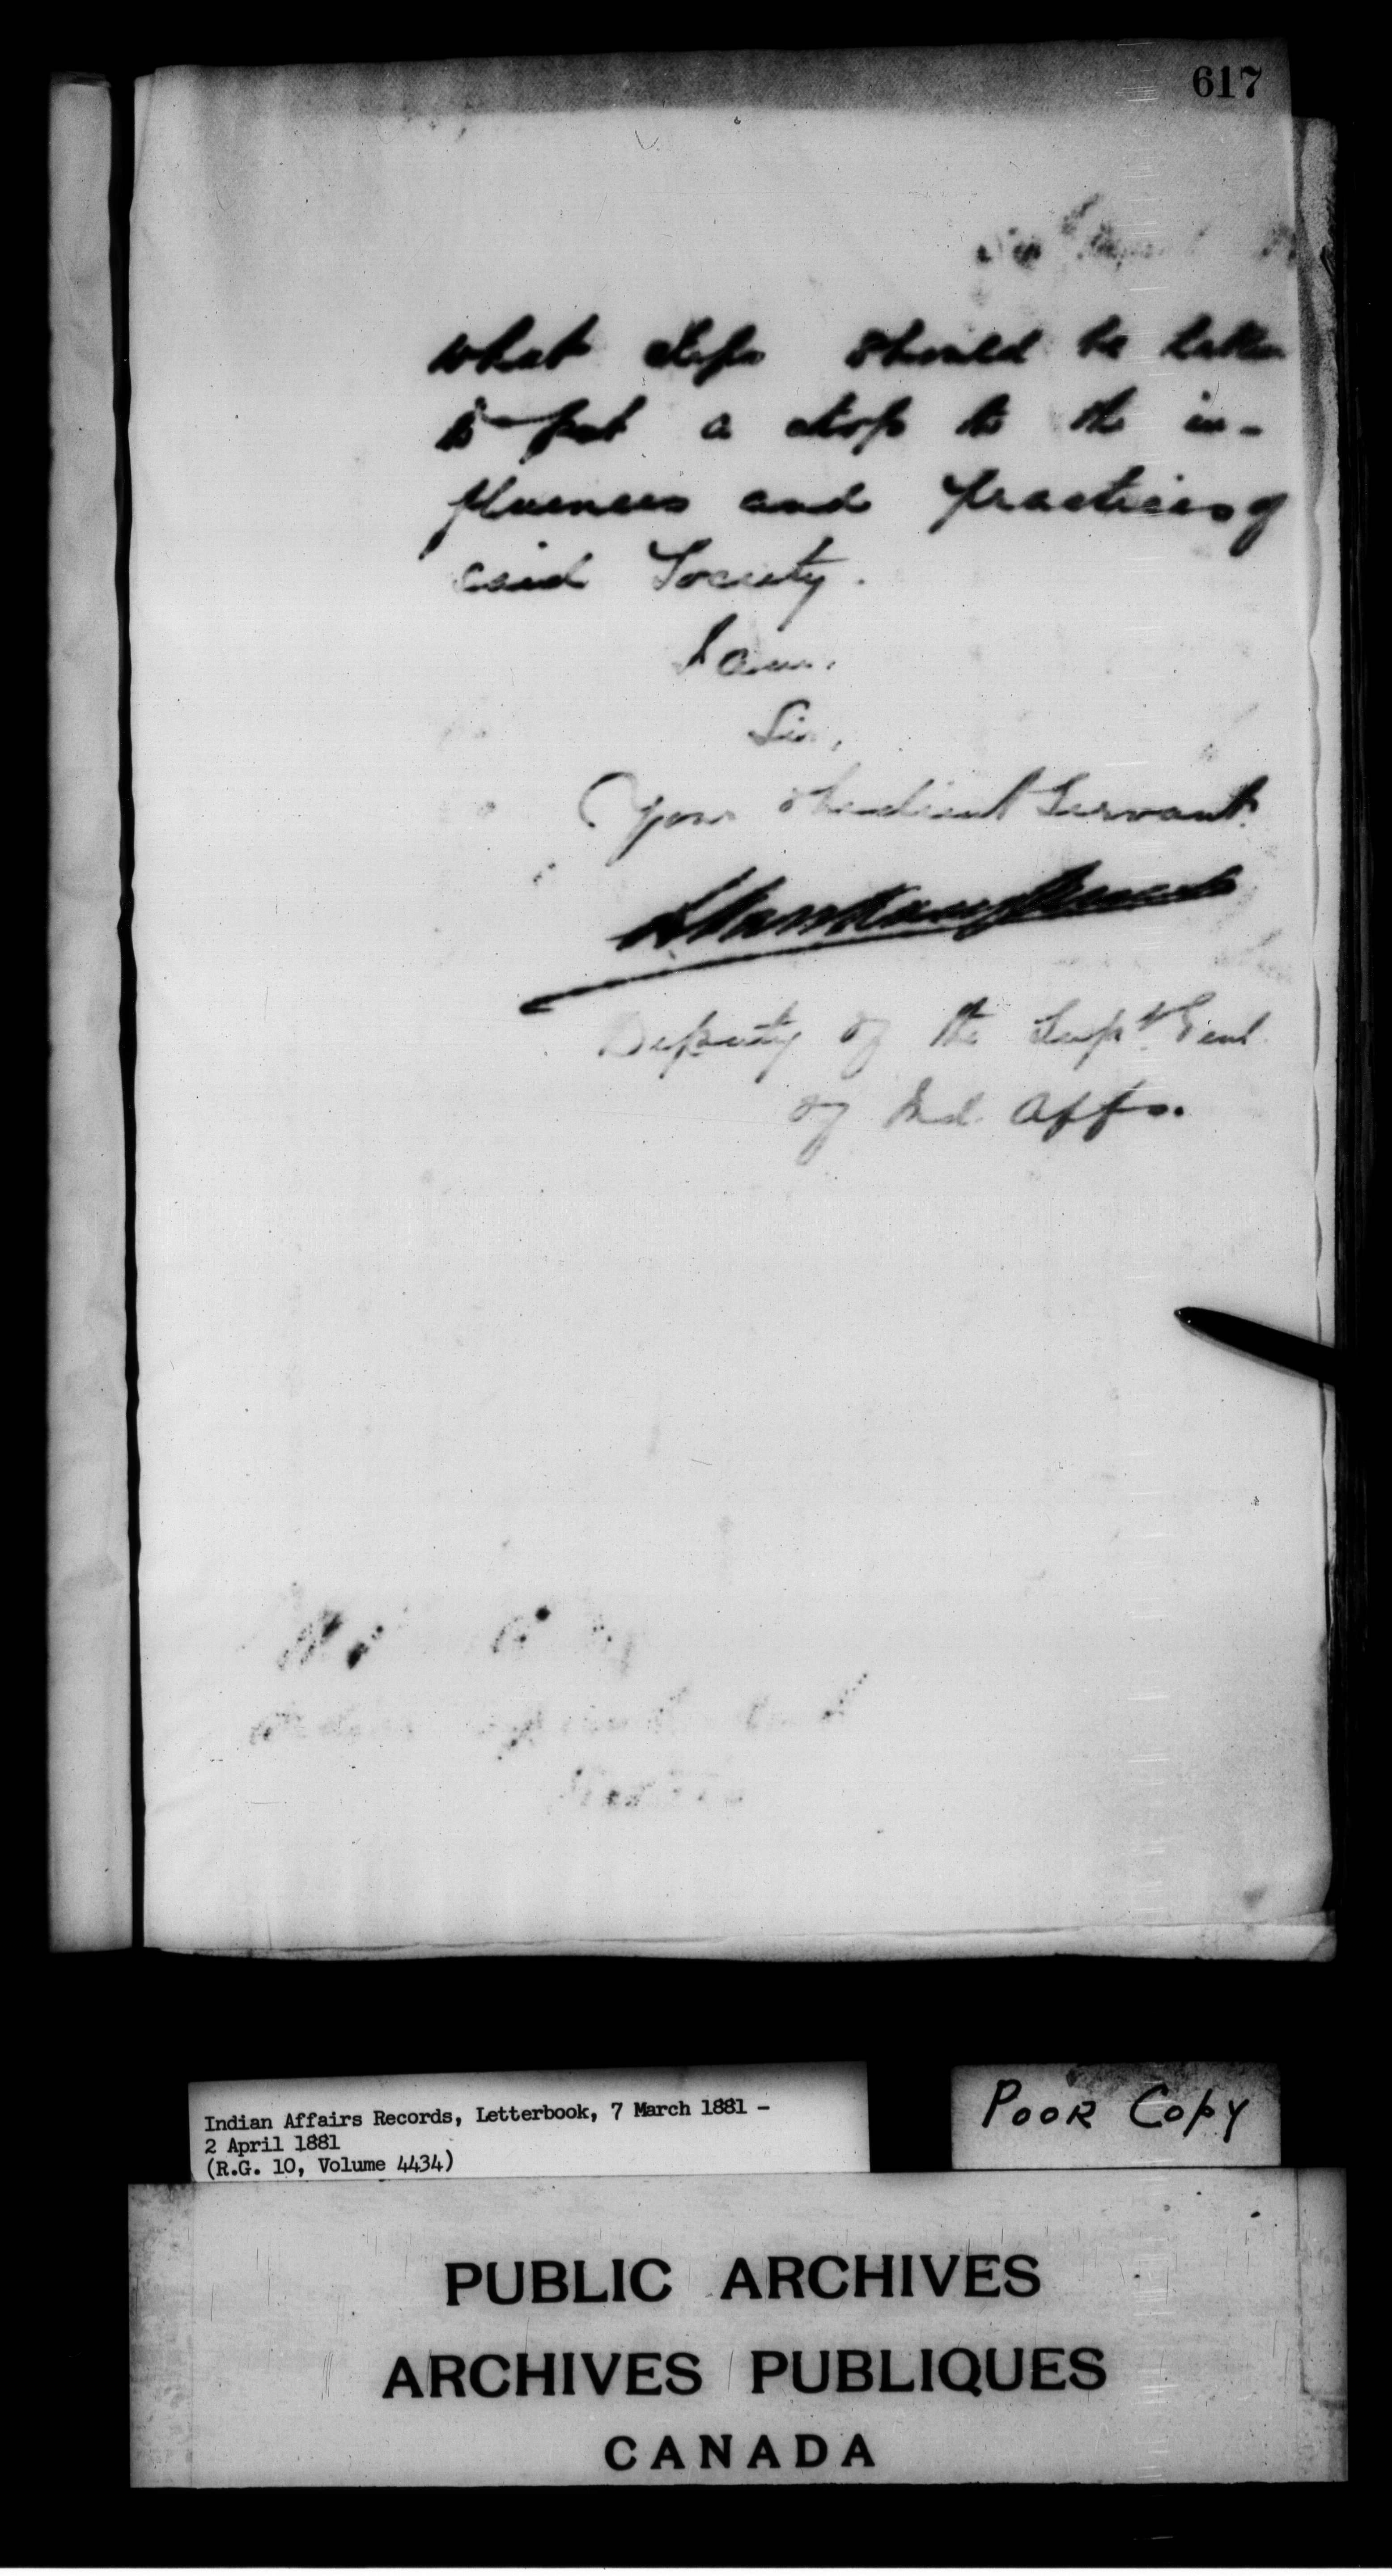 617
what steps should be taken
to put a stop to the in-
fluences and practices of
said Society.
I am,
Sir,
Your obedient Servant.
L Vankoughnet
Deputy of the Supt Genl
of Ind. Affs.
Indian Affairs Records, Letterbook, 7 March 1881 -
2 April 1881
(R.G. 10, Volume 4434)
POOR COPY
PUBLIC ARCHIVES
ARCHIVES PUBLIQUES
CANADA